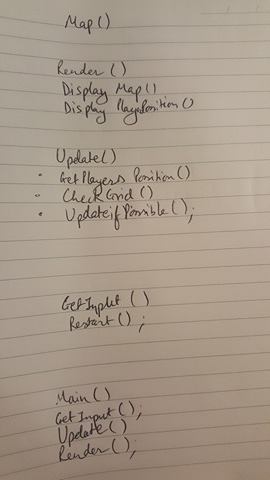 Map()
Render()
Display Map()
Display PlayerPosition()
Update()
• GetPlayers Position()
• CheckGrid()
• UpdateifPossible();
GetInput()
Restart();
Main()
GetInput();
Update()
Render();